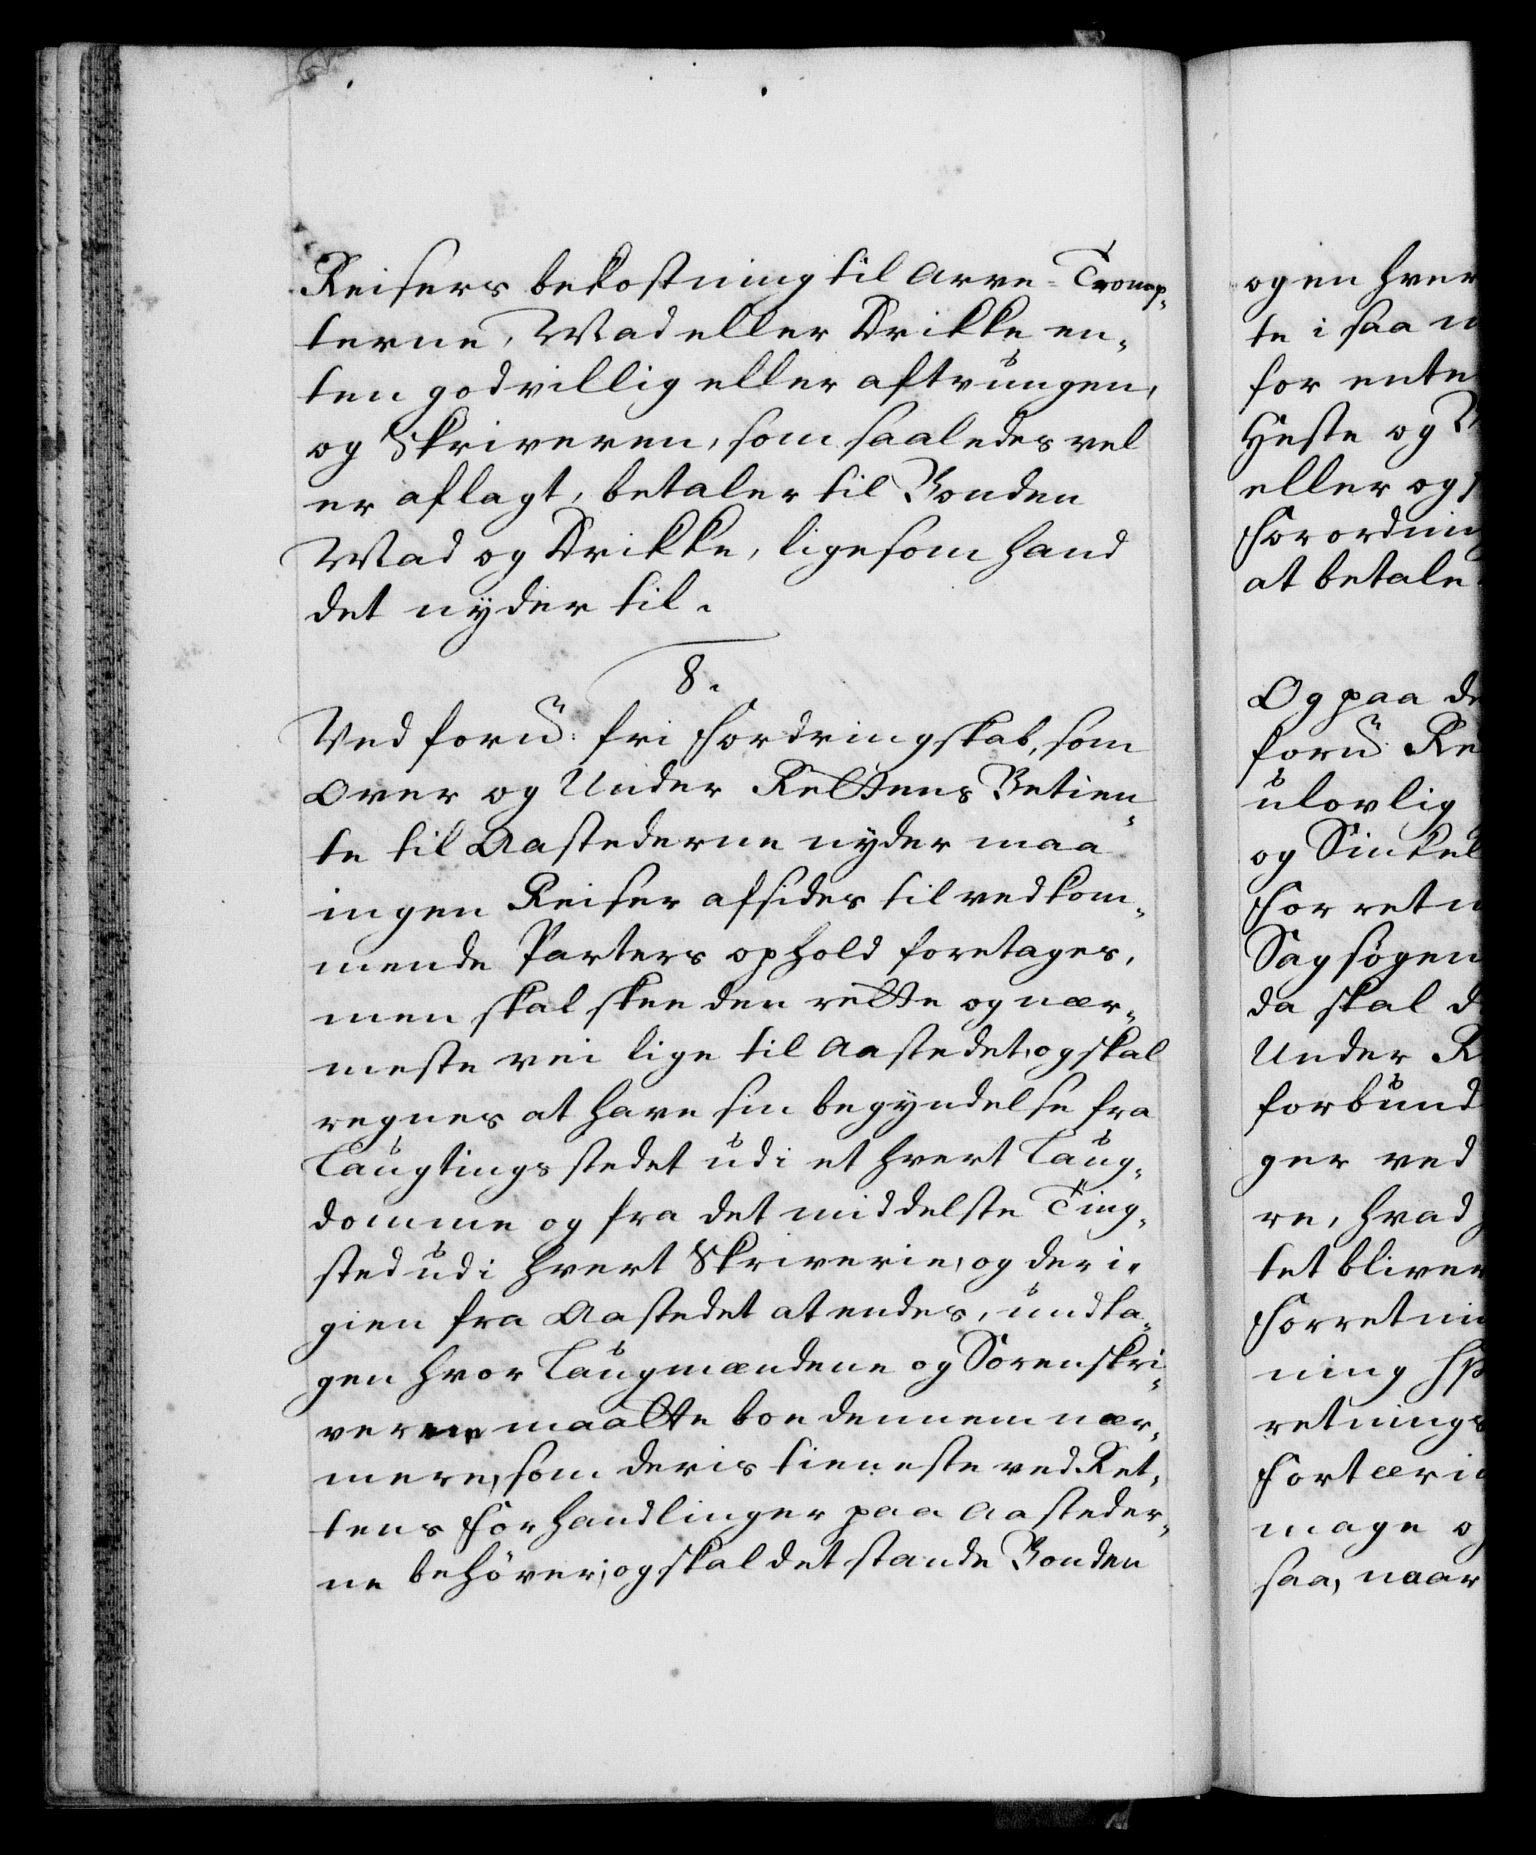 Reisers bekostning til Arve-Tromp-
terne, Mad eller Drikke en-
ten godvillig eller aftrungen,
og Skriveren, som saaledes vel
er aflagt, betaler til Bonden
Mad og Drikke, ligesom hand
det nyder til.
8.
Ved forn: fri Fordringskab, som
Over og Under Rettens Betien-
te til Aastederne nyder maa
ingen Reiser afsides til vedkom-
mende Parters ophold foretages,
men skal skee den rette og nær-
meste vei lige til Aastedet, og skal
regnes at have sin begyndelse fra
Laugtingsstedet udi et hvert Laug-
domme og fra det middelste Ting-
sted udi hvert Skriverie, og der i-
gien fra Aastedet at endes, undta-
gen hvor Laugmændene og Sorenskri-
verne maatte boe dennem nær-
mere, som deris tieneste ved Ret-
tens Forhandlinger paa Aasteder-
ne behøver; og skal det stande Bonden
og en hver
te i saa
for ente
Heste og
eller og
Forordning
at betale
Og paa de
forn: Re
ulovlig
og Vinkel
Forretn
Sagsøgen
da skal d
Under R
forbund
ger ved
re, hvad
tet bliver
Forretni
ning
retnings
Fortæri
mage o
saa, naar